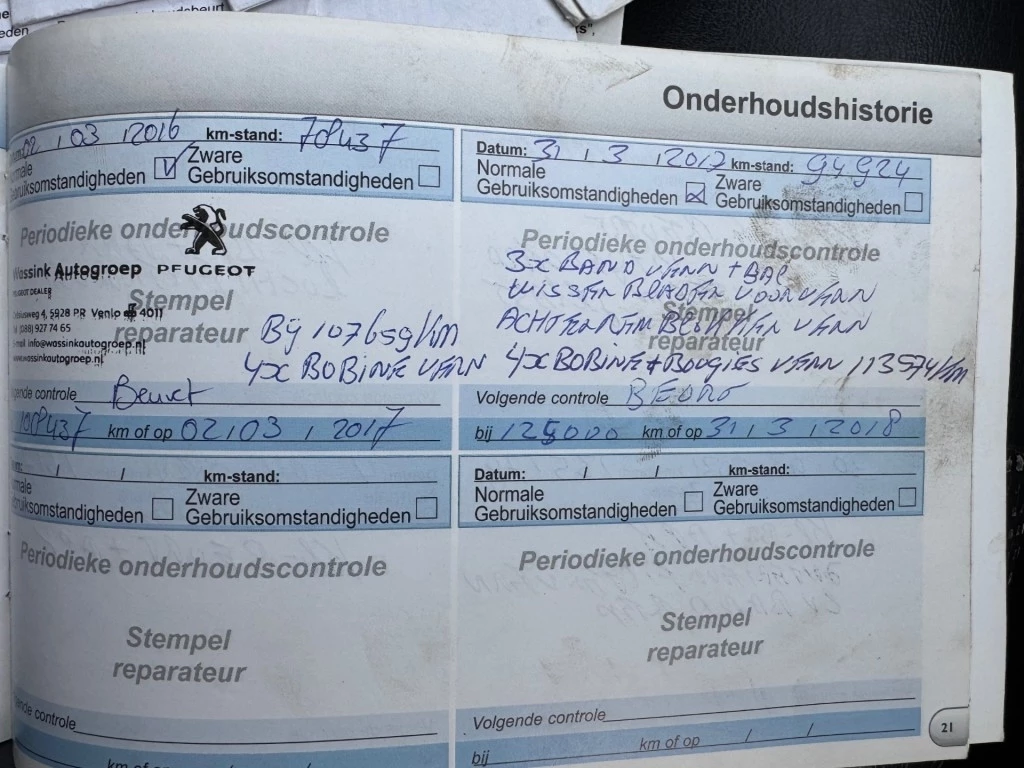 dsbeurt
eden
Onderhoudshistorie
02 / 03 / 2016 km-stand: 78437
male Gebruiksomstandigheden V Zware Gebruiksomstandigheden
Periodieke onderhoudscontrole
Wassink Autogroep PEUGEOT
PEUGEOT DEALER
Stempel
5928 PR Venlo 4011
(088) 927 74 65
reparateur
E-mail info@wassinkautogroep.nl
www.wassinkautogroep.nl
Bij 107659/km
4x BOBINE VERN
gende controle Beurt
108437 km of op 02 / 03 / 2017
Datum: 31 / 3 / 2017 km-stand: 94924
Normale Gebruiksomstandigheden X Zware Gebruiksomstandigheden
Periodieke onderhoudscontrole
3x BAND VERN + BAL
WISSER BLADEN VOOR VERN
Stempel
ACHTER REM BLOKKEN VERN
reparateur
4x BOBINE + BOUGIES VERN 113574/km
Volgende controle BEURT
bij 125000 km of op 31 / 3 / 2018
/ / km-stand:
male Gebruiksomstandigheden Zware Gebruiksomstandigheden
Periodieke onderhoudscontrole
Stempel
reparateur
gende controle
km of op / /
Datum: / / km-stand:
Normale Gebruiksomstandigheden Zware Gebruiksomstandigheden
Periodieke onderhoudscontrole
Stempel
reparateur
Volgende controle
bij km of op / /
21